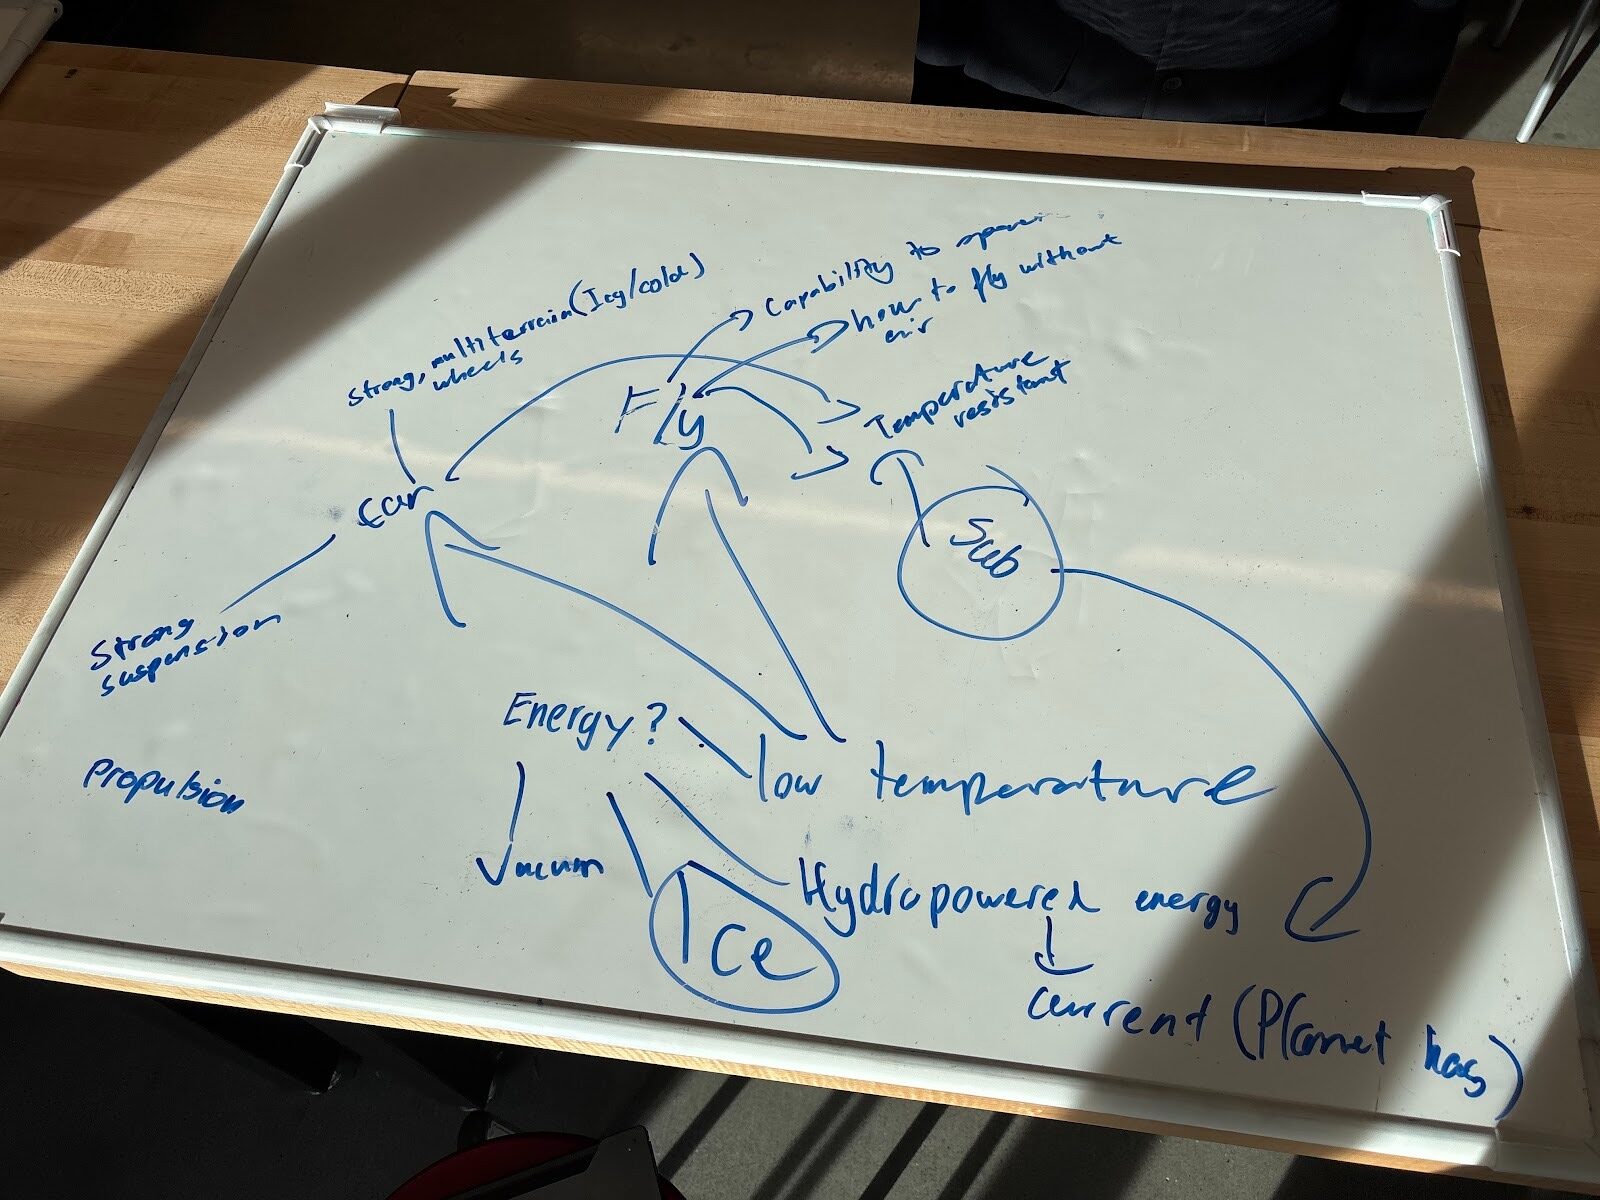 Capability to
how to fly without
air
Strong, multiterrain (Icy/cold)
wheels
Fly
Temperature
resistant
Car
Sub
Strong
suspension
Energy?
low temperature
Propulsion
Vacuum
Hydropowered energy
Ice
current (Planet has)